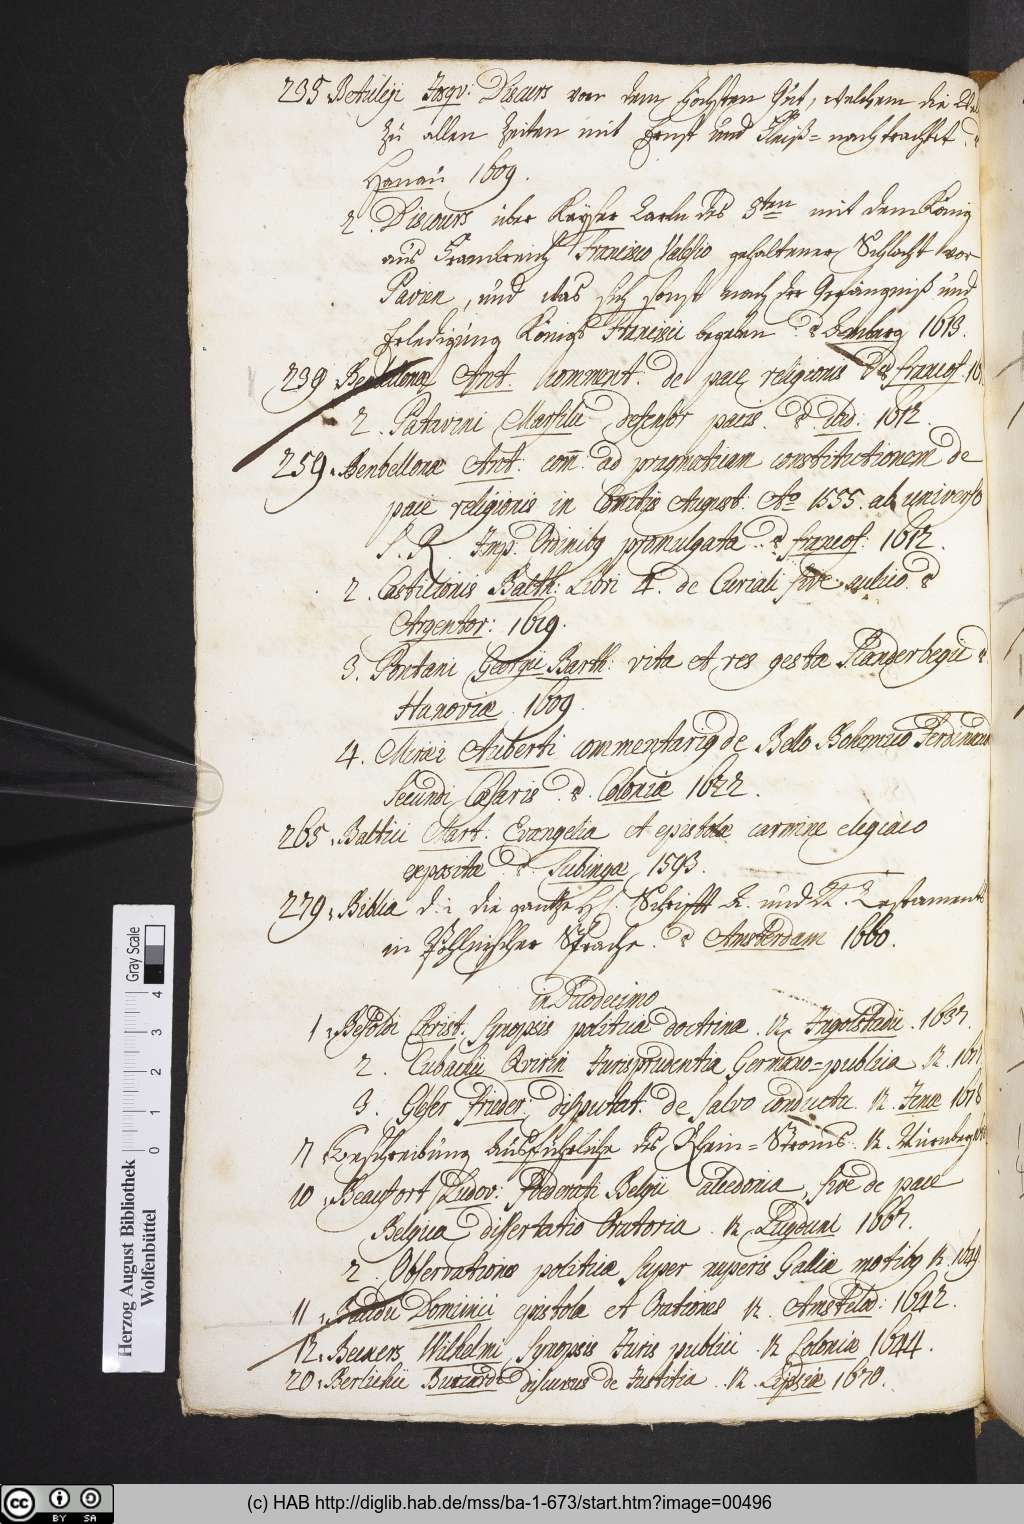 235 Betuleji Josqv: Discurs von dem höchsten Gut, welchem die
zu allen Zeiten mit Ernst und Fleiß=nachtrachtet
Hanau 1609.
2. Discours über Kayser Carln des 5ten mit dem König
aus Franckreich Francisco Valesio gehaltener Schlacht vor
Pavien, und was sich sonst nach der Gefängniß und
Erledigung Königs Francisci begeben 1613.
239 Benbellona Ant. comment. de pace religionis francof.
2. Patavini Marsilii defensor pacis. ibid: 1612.
259. Benbellona Ant. com̄. ad pragmaticam constitutionem de
pace religionis in Comitiis August: Ao 1555. ab universo
S. R. Imp: Ordinibq promulgata francof: 1612.
2. Castilionis Balth: Libri 4. de Curiali sive aulico
Argentor: 1619.
3. Pontani Georgii Barth: vita et res gesta Scanderbegii
Hanoviæ 1609
4. Miræi Auberti commentarig de Bello Bohemico Ferdinandi
Secundi Cæsaris Coloniæ 1622.
265. Baltici Mart. Evangelia et epistolæ carmine elegiaco
exposita Tubingæ 1593.
279. Biblia d. i. die gantze H. Schrifft A. und N. Testaments
in Pohlnischer Sprache. Amsterdam 1660.
in Duodecimo
1. Besoldi Christ. Synopsis politicæ doctrinæ. Ingolstadii. 1637.
2. Cubachii Qvirin Jurisprudentia Germano=publica
3. Geser Frieder. disputat. de salvo conductu Jenæ 1678
7 Beschreibung Ausführliche des Rhein=Stroms. Nürnberg
10. Beaufort Ludov: foederati Belgii alcedonia, sive de pace
Belgica dissertatio Oratoria. Lugduni 1667.
2. Observationes politicæ super nuperis Galliæ motibq 1649
11. Baudii Dominici epistolæ et Orationes Amstelod: 1642.
12. Beiners Wilhelmi Synopsis Juris publici Coloniæ 1644.
20. Berlichii Burcard discursus de Justitia. Lipsiæ 1670.
Gray Scale
0 1 2 3 4
Herzog August Bibliothek
Wolfenbüttel
cc BY SA
(c) HAB http://diglib.hab.de/mss/ba-1-673/start.htm?image=00496